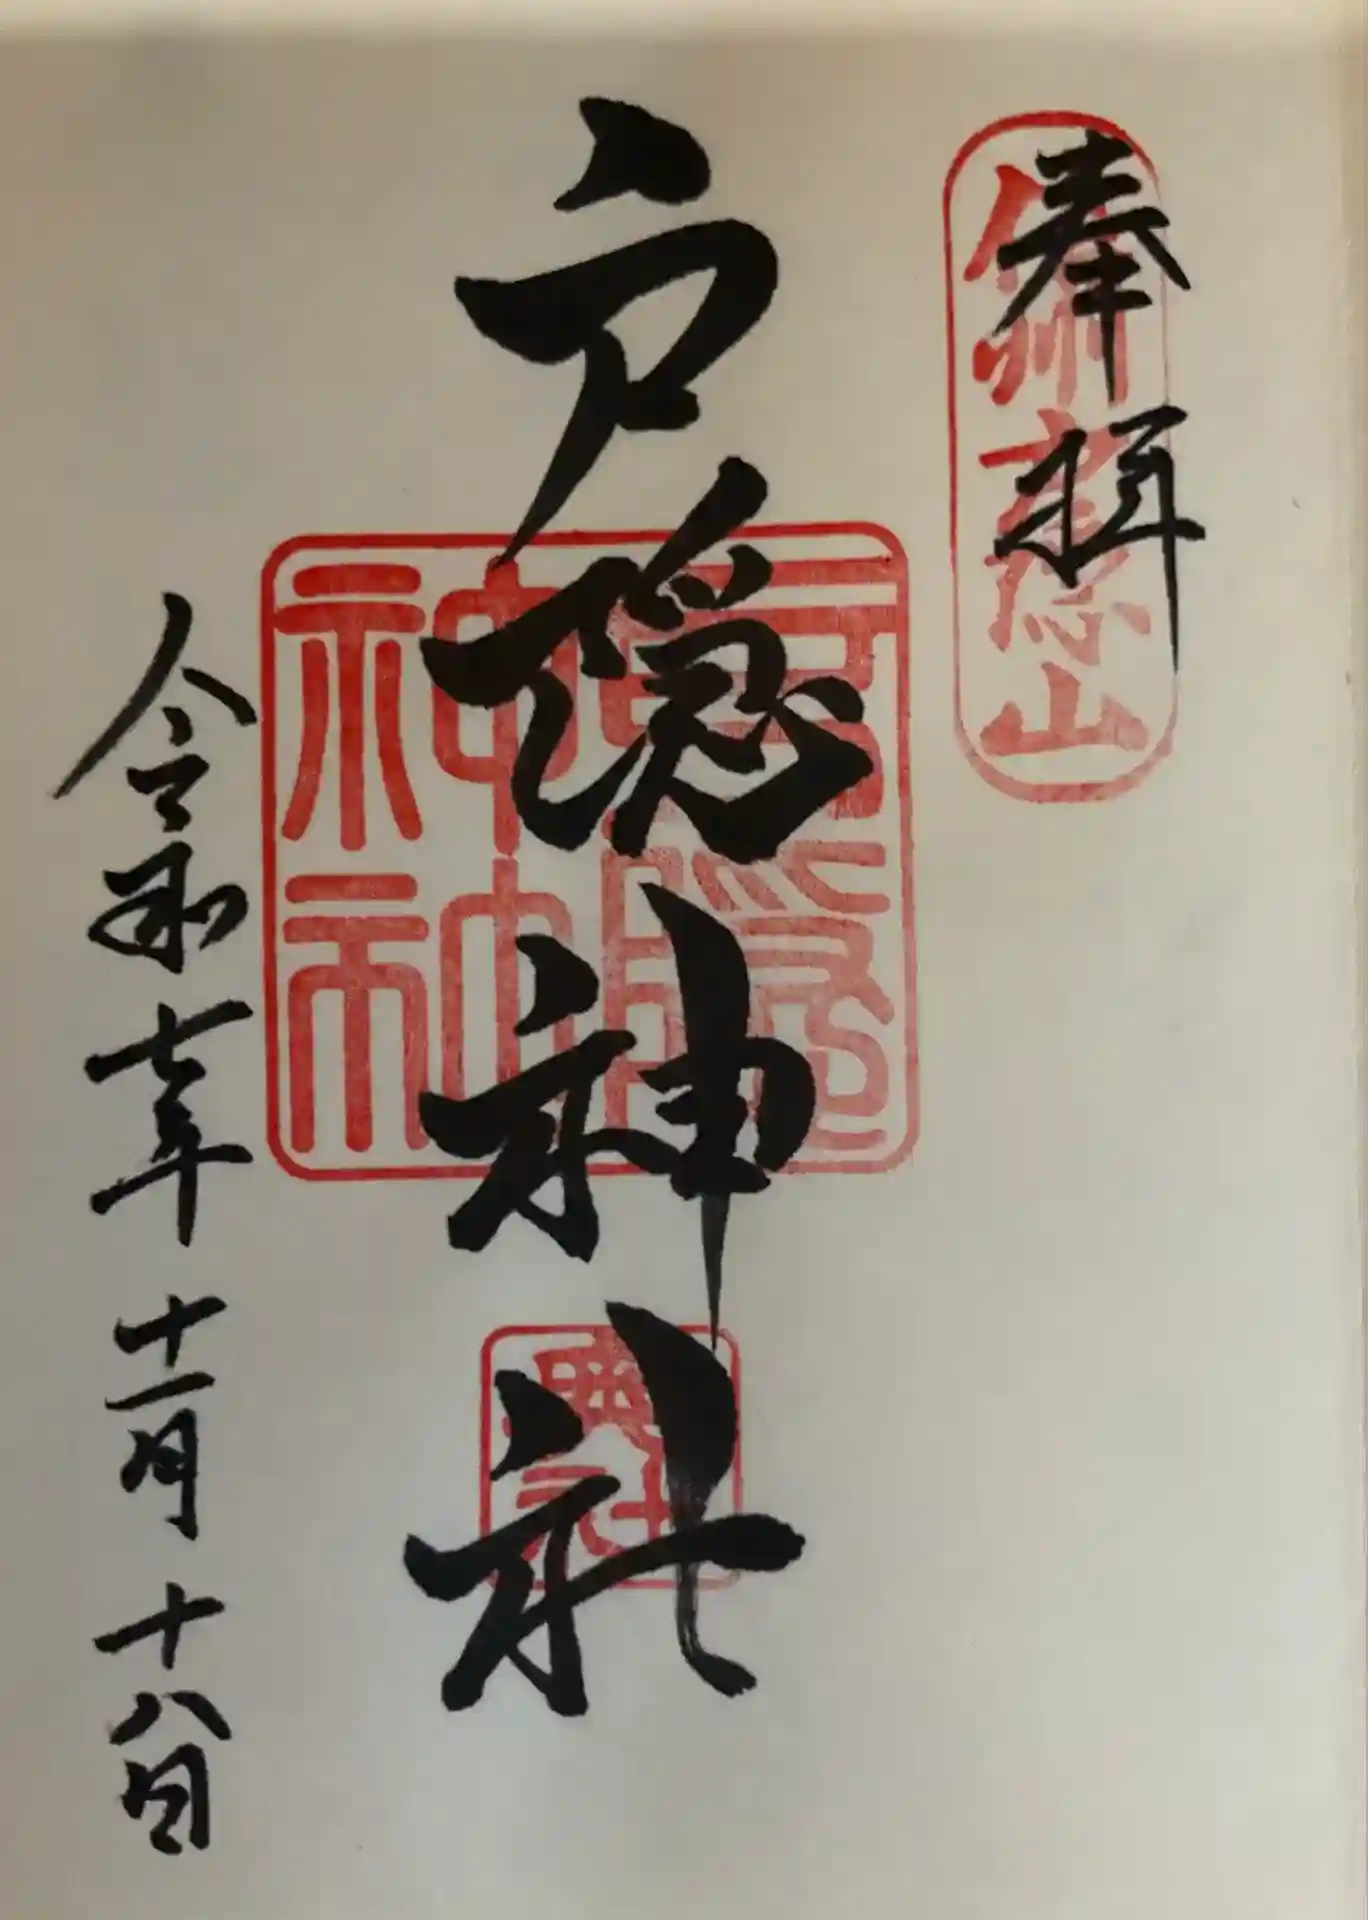 奉拝
信州戸隠山
戸隠神社
戸隠
神社
奥社
令和七年十一月十八日